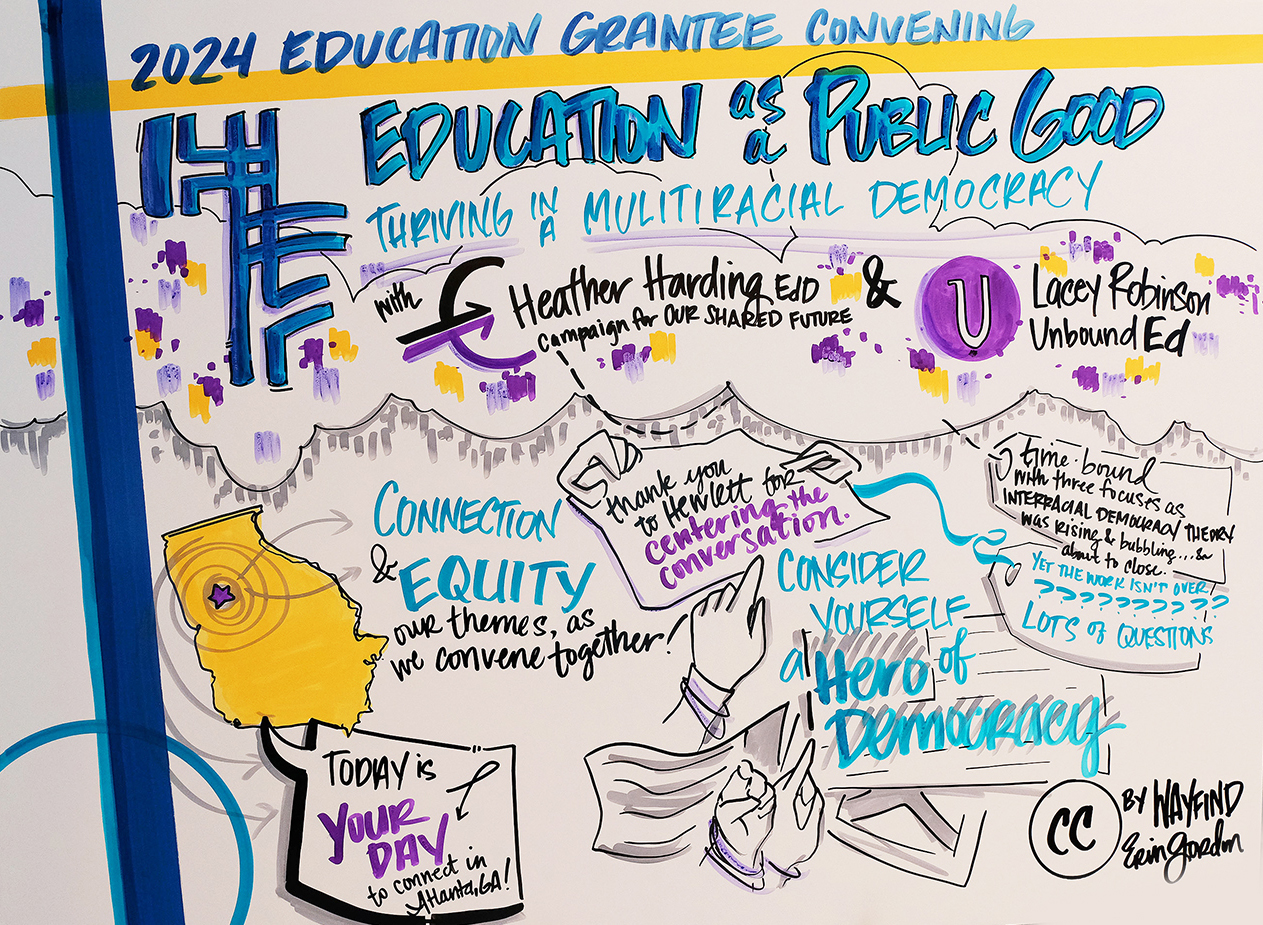 2024 EDUCATION GRANTEE CONVENING
EDUCATION as a PUBLIC GOOD
THRIVING IN A MULITIRACIAL DEMOCRACY
with
HEATHER HARDING EdD
campaign for OUR SHARED FUTURE
&
U
Lacey Robinson
Unbound Ed
CONNECTION
& EQUITY
our themes, as
we convene together!
thank you
to Hewlett for
centering the
conversation.
time-bound
with three focuses as
INTERRACIAL DEMOCRACY THEORY
was rising & bubbling...&
about to close.
YET THE WORK ISN'T OVER
??????????
LOTS of QUESTIONS
CONSIDER
YOURSELF
a Hero of
Democracy
TODAY is
YOUR
DAY
to connect in
Atlanta, GA!
CC
BY WAYFIND
Erin Gordon